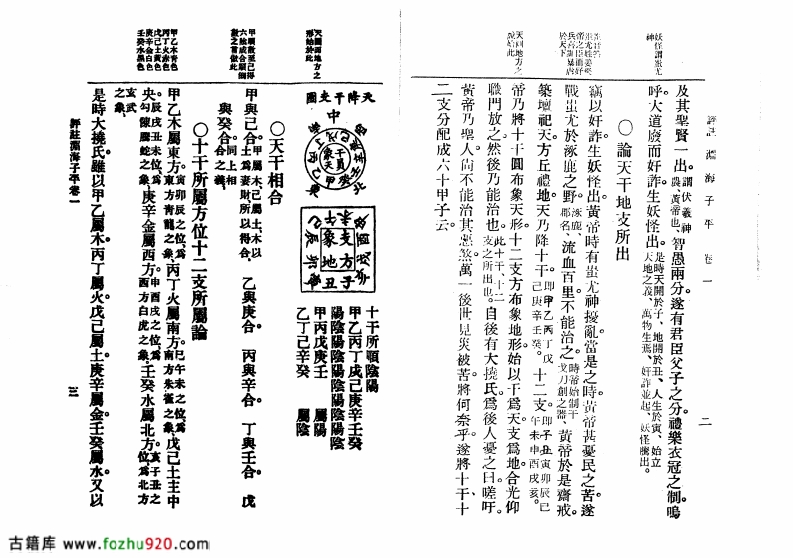 評註淵海子平 卷一
二
妖怪謂蚩尤
神
及其聖賢一出。謂伏羲神農、黃帝也、智愚兩分。遂有君臣父子之分。禮樂衣冠之制。嗚
呼。大道廢而奸詐生。妖怪出。是時天開於子、地開於丑、人生於寅、始立天地之義、萬物生焉、奸詐並起、妖怪騰出。
〇論天干地支所出
竊以奸詐生。妖怪出。黃帝時有蚩尤神擾亂。當是之時。黃帝甚憂民之苦。遂
戰蚩尤於涿鹿之野。涿鹿、郡名、流血百里。不能治之。時帝始制干戈刀劍之器、黃帝於是齋戒。
築壇祀天。方丘禮地。天乃降十干。即甲乙丙丁戊己庚辛壬癸。十二支。即子丑寅卯辰巳午未申酉戌亥。
天圓地方之
說始此
帝乃將十干圓布象天形。十二支方布象地形。始以干爲天。支爲地。合光仰
職門放之。然後乃能治也。此十干、十二支之所出也。自後有大撓氏爲後人憂之曰。嗟吁。
黃帝乃聖人。尙不能治其惡煞。萬一後世見災被苦。將何奈乎。遂將十干十
二支。分配成六十甲子云。
天圓而地方之
形始於此
天降干支圖
中
天干
象支方地
子丑
十干所順陰陽
甲乙丙丁戊己庚辛壬癸
陽陰陽陰陽陰陽陰陽陰
甲丙戊庚壬 屬陽
乙丁己辛癸 屬陰
〇天干相合
甲與己合。甲屬木、己屬土、木以土爲妻財、所以得合。 乙與庚合。 丙與辛合。 丁與壬合。 戊
與癸合。同上相合之義。
〇十干所屬方位十二支所屬論
甲乙木青色
丙丁火赤色
戊己土黃色
庚辛金白色
壬癸水黑色
甲乙木屬東方。寅卯辰之位、爲東方青龍之象、丙丁火屬南方。巳午未之位、爲南方朱雀之象、戊己土主中
央。辰戌丑未位、爲勾陳螣蛇之象、庚辛金屬西方。申酉戌之位、爲西方白虎之象、壬癸水屬北方。亥子丑之位、爲北方
玄武之象、
是時大撓氏雖以甲乙屬木。丙丁屬火。戊己屬土。庚辛屬金。壬癸屬水。又以
評註淵海子平 卷一
三
古籍库 www.fozhu920.com